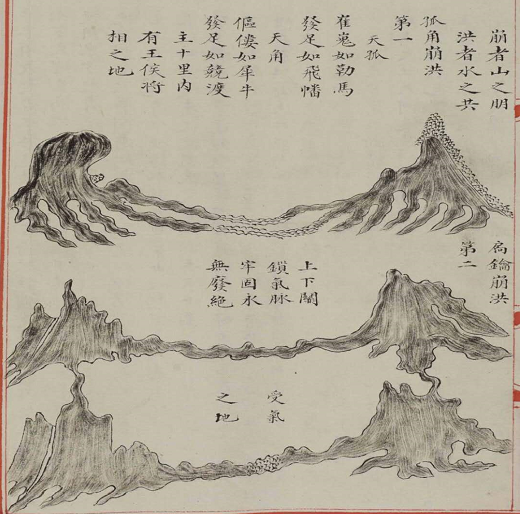 崩者山之朋
洪者水之共
孤角崩洪
第一
天孤
崔嵬如勒馬
發足如飛幡
天角
傴僂如犀牛
發足如競渡
主十里內
有王侯將
相之地
扃鑰崩洪
第二
上下關
鎖氣脉
牢固永
無發絶
受氣
之地